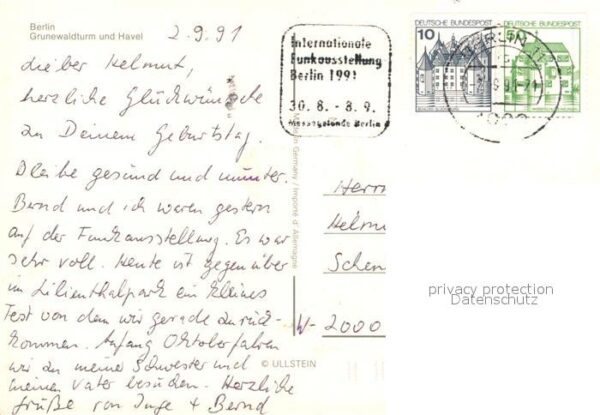 Berlin
Grunewaldturm und Havel
2.9.91
Lieber Helmut,
herzliche Glückwünsche
zu Deinem Geburtstag.
Bleibe gesund und munter.
Bernd und ich waren gestern
auf der Funkausstellung. Es war
sehr voll. Heute ist gegenüber
im Lilienthalpark ein kleines
Fest von dem wir gerade zurück-
kommen. Anfang Oktober fahren
wir zu meiner Schwester und
meinen Vater besuchen. Herzliche
Grüße von Inge + Bernd
Internationale
Funkausstellung
Berlin 1991
30.8. - 8.9.
Messegelände Berlin
DEUTSCHE BUNDESPOST
10
DEUTSCHE BUNDESPOST
5
BERLIN 17
Made in Germany / Importé d'Allemagne
© ULLSTEIN
Herrn
Helmu
Schen
W- 2000
privacy protection
Datenschutz